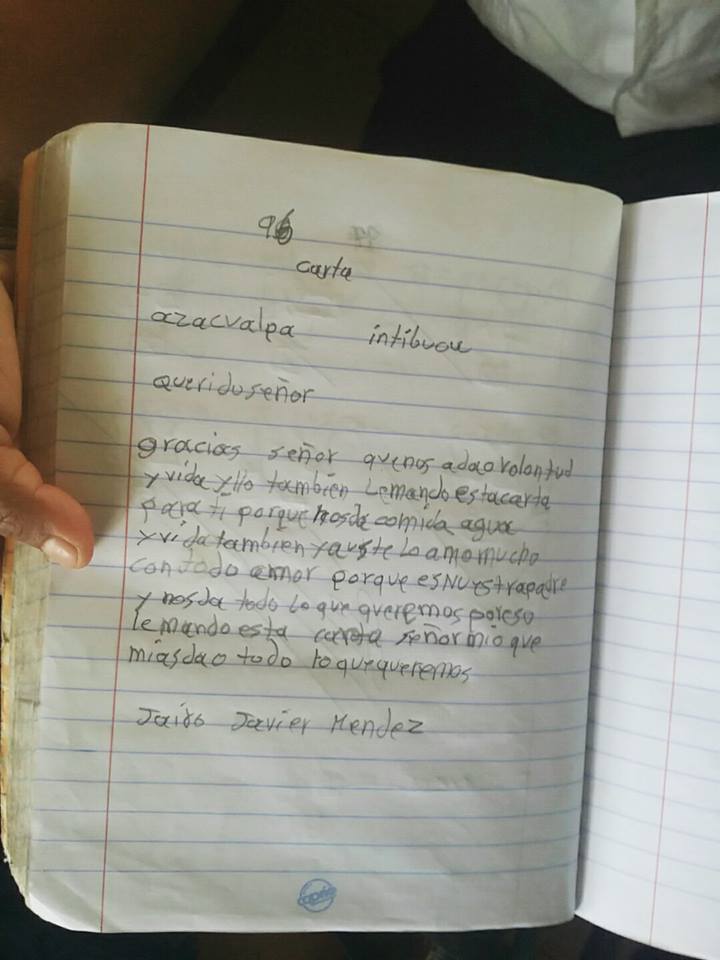 96
carta
azacvalpa intibuou
querido señor
gracias señor quenos adao volontud
y vida y llo también Lemando estacarta
para ti porque nosda comida agua
y vida tambien yauste lo amo mucho
con todo amor porque es NUestrapadre
y nosda todo Lo que queremos poreso
le mando esta careta señor mio que
miasdao todo lo quequeremos
Jairo Javier Mendez
copán